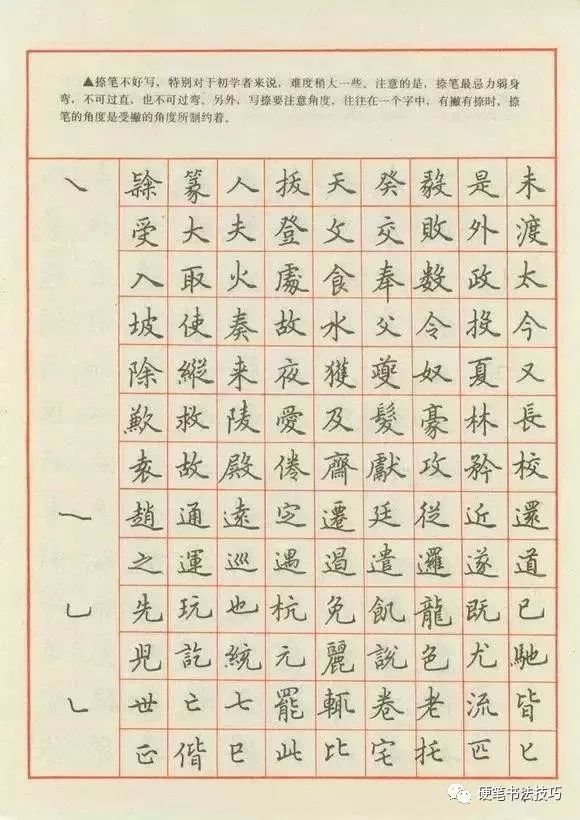 ▲捺笔不好写，特别对于初学者来说，难度稍大一些。注意的是，捺笔最忌力弱身
弯，不可过直，也不可过弯。另外，写捺要注意角度，往往在一个字中，有撇有捺时，捺
笔的角度是受撇的角度所制约着。
㇏ 篆 人 拔 天 癸 毅 是 未
受 大 夫 登 文 交 敗 外 渡
入 取 火 處 食 奉 数 政 太
坡 使 奏 故 水 父 令 投 今
除 縱 来 夜 獲 夔 奴 夏 又
歉 救 陵 愛 及 髮 豪 林 長
袁 故 殿 倦 齋 獻 攻 矜 校
㇐ 趙 通 遠 定 遷 廷 從 近 還
之 運 巡 遇 遏 遣 邏 遂 道
乚 先 玩 也 杭 免 飢 龍 既 已
兒 訖 統 元 麗 說 色 尤 馳
㇄ 世 亡 七 罷 輒 卷 老 流 皆
正 偕 巳 此 比 宅 托 匹 匕
硬笔书法技巧